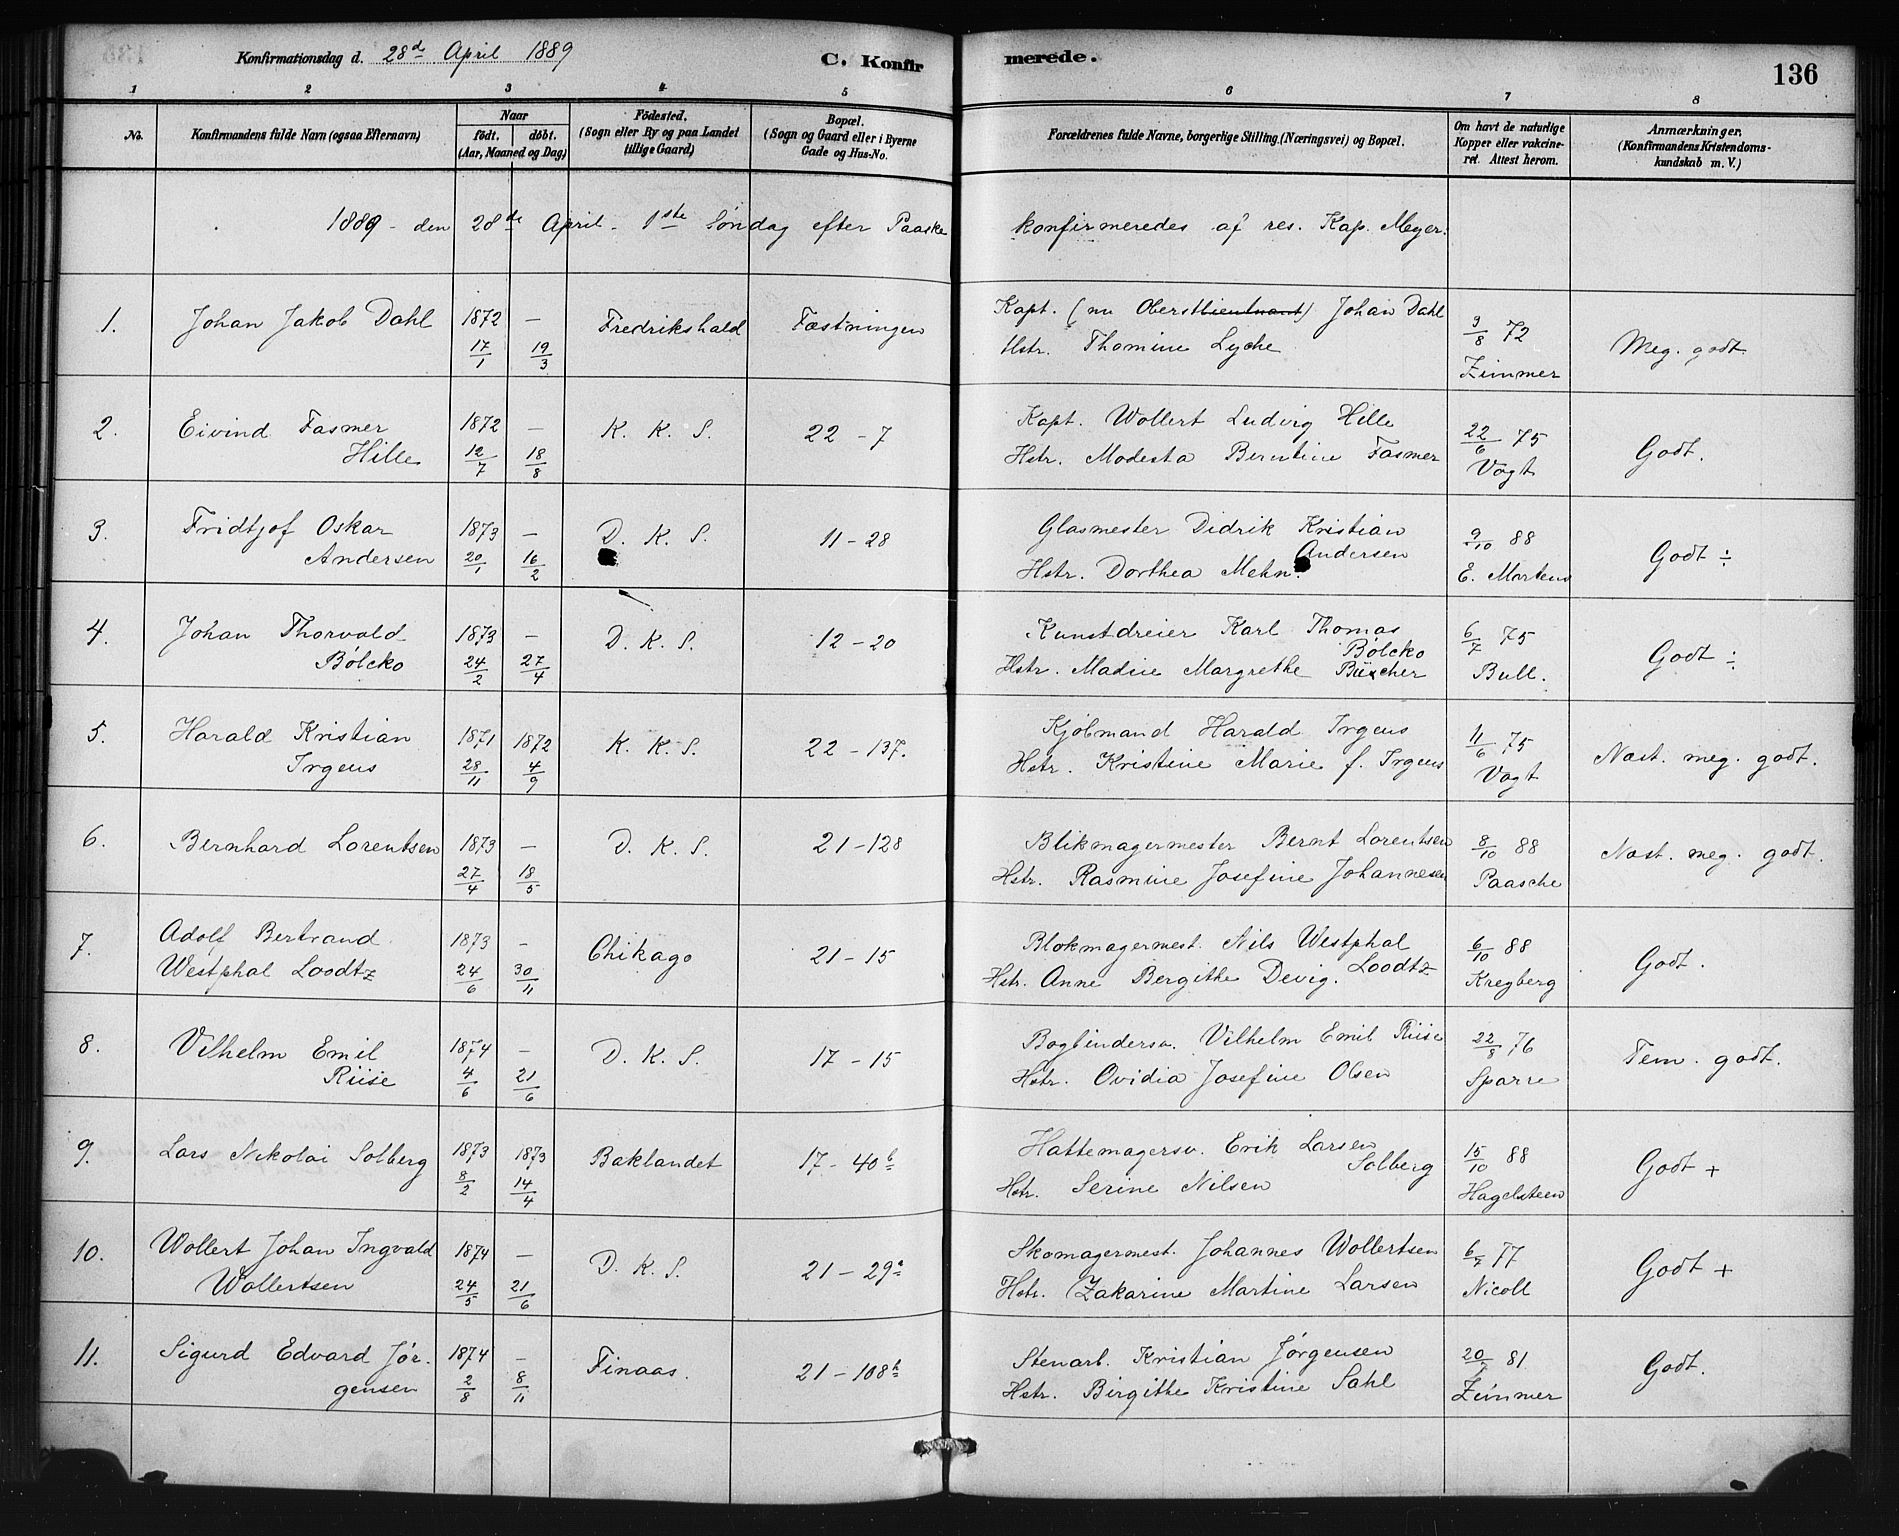 Konfirmationsdag d. 28de April 1889 C. Konfirmerede. 136
1 2 3 4 5 6 7 8
No. Konfirmandens fulde Navn (ogsaa Efternavn) Naar födt. döbt. (Aar, Maaned og Dag) Födested. (Sogn eller By og paa Landet tillige Gaard) Bopæl. (Sogn og Gaard eller i Byerne Gade og Hus-No. Forældrenes fulde Navne, borgerlige Stilling, (Næringsvei) og Bopæl. Om havt de naturlige Kopper eller vakcineret. Attest herom. Anmærkninger, (Konfirmandens Kristendomskundskab m. V.)
1889 - den 28de April - 1ste Søndag efter Paaske konfirmeredes af res. Kap. Meyer.
1. Johan Jakob Dahl 1872 17/1 — 19/3 Fredrikshald Fæstningen Kapt. (nu Oberstlieutnant) Johan Dahl
Hstr. Thomine Lyche 3/8 72 Zimmer Meg. godt.
2. Eivind Fasmer Hille 1872 12/7 — 18/8 K. K. S. 22 - 7 Kapt. Wollert Ludvig Hille
Hstr. Modesta Berntine Fasmer 22/6 75 Vogt Godt.
3. Fridtjof Oskar Andersen 1873 20/1 — 16/2 D. K. S. 11 - 28 Glasmester Didrik Kristian Andersen
Hstr. Dorthea Mehn. 9/10 88 E. Martens Godt ÷
4. Johan Thorvald Bølcko 1873 24/2 — 27/4 D. K. S. 12 - 20 Kunstdreier Karl Thomas Bølcko
Hstr. Madine Margrethe Büscher 6/7 75 Bull. Godt ÷
5. Harald Kristian Irgens 1871 28/11 1872 4/9 K. K. S. 22 - 137. Kjøbmand Harald Irgens
Hstr. Kristine Marie f. Irgens 11/6 75 Vogt Næst. meg. godt.
6. Bernhard Lorentsen 1873 27/4 — 18/5 D. K. S. 21 - 128 Blikmagermester Bernt Lorentsen
Hstr. Rasmine Josefine Johannesen 8/10 88 Paasche Næst. meg. godt.
7. Adolf Bertrand Westphal Loodtz 1873 24/6 - 30/11 Chikago 21 - 15 Blokmagermest. Nils Westphal Loodtz
Hstr. Anne Bergithe Devig. 6/10 88 Kregberg Godt.
8. Vilhelm Emil Riise 1874 4/6 — 21/6 D. K. S. 17 - 15 Bogbindersv. Vilhelm Emil Riise
Hstr. Ovidia Josefine Olsen 22/8 76 Sparre Tem. godt.
9. Lars Nikolai Solberg 1873 8/2 1873 14/4 Baklandet 17 - 40b Hattemagersv. Erik Larsen Solberg
Hstr. Serine Nilsen 15/10 88 Hagelsteen Godt +
10. Wollert Johan Ingvald Wollertsen 1874 24/5 — 21/6 D. K. S. 21 - 29a Skomagermest. Johannes Wollertsen
Hstr. Zakarine Martine Larsen 6/7 77 Nicoll Godt +
11. Sigurd Edvard Jørgensen 1874 2/8 — 8/11 Finaas. 21 - 108b Stenarb. Kristian Jørgensen
Hstr. Birgithe Kristine Sahl 20/7 81 Zimmer Godt.